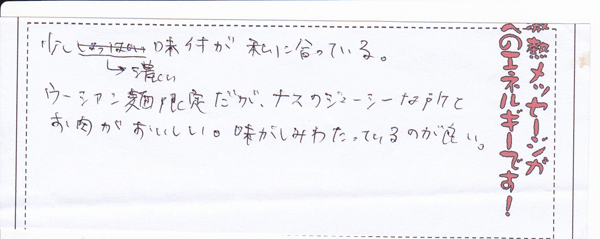 少ししょっぱい味付が私に合っている。
→濃い
ウーシアン麺限定だが、ナスのジューシーな所と
お肉がおいしい。味がしみわたっているのが良い。
熱メッセージが
へのエネルギーです!